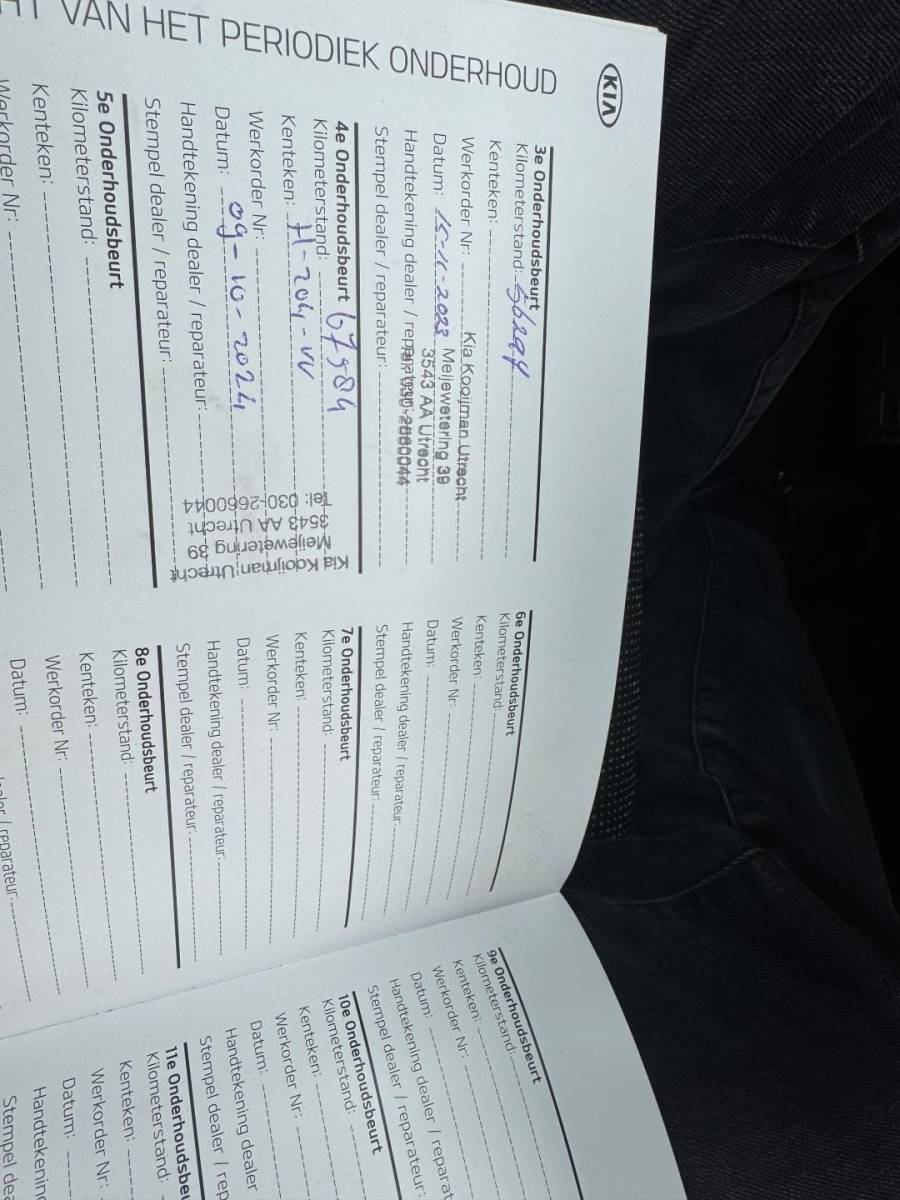 VAN HET PERIODIEK ONDERHOUD
KIA
3e Onderhoudsbeurt
Kilometerstand:
Kenteken:
Werkorder Nr: Kia Kooijman Utrecht
Datum: 15-11-2023 Meijewetering 39
3543 AA Utrecht
Handtekening dealer / reparateur:
Stempel dealer / reparateur:
4e Onderhoudsbeurt
Kilometerstand: 67984
Kenteken: H-204-VV
Werkorder Nr:
Datum: 09-10-2024
Handtekening dealer / reparateur:
Stempel dealer / reparateur:
Kia Kooijman Utrecht
Meijewetering 39
3543 AA Utrecht
Tel: 030-2660044
5e Onderhoudsbeurt
Kilometerstand:
Kenteken:
Werkorder Nr:
6e Onderhoudsbeurt
Kilometerstand:
Kenteken:
Werkorder Nr:
Datum:
Handtekening dealer / reparateur:
Stempel dealer / reparateur:
7e Onderhoudsbeurt
Kilometerstand:
Kenteken:
Werkorder Nr:
Datum:
Handtekening dealer / reparateur:
Stempel dealer / reparateur:
8e Onderhoudsbeurt
Kilometerstand:
Kenteken:
Werkorder Nr:
Datum:
/ reparateur:
9e Onderhoudsbeurt
Kilometerstand:
Kenteken:
Werkorder Nr:
Datum:
Handtekening dealer / reparat
Stempel dealer / reparateur:
10e Onderhoudsbeurt
Kilometerstand:
Kenteken:
Werkorder Nr:
Datum:
Handtekening dealer
Stempel dealer / rep
11e Onderhoudsbeu
Kilometerstand:
Kenteken:
Werkorder Nr:
Datum:
Handtekening
Stempel dea